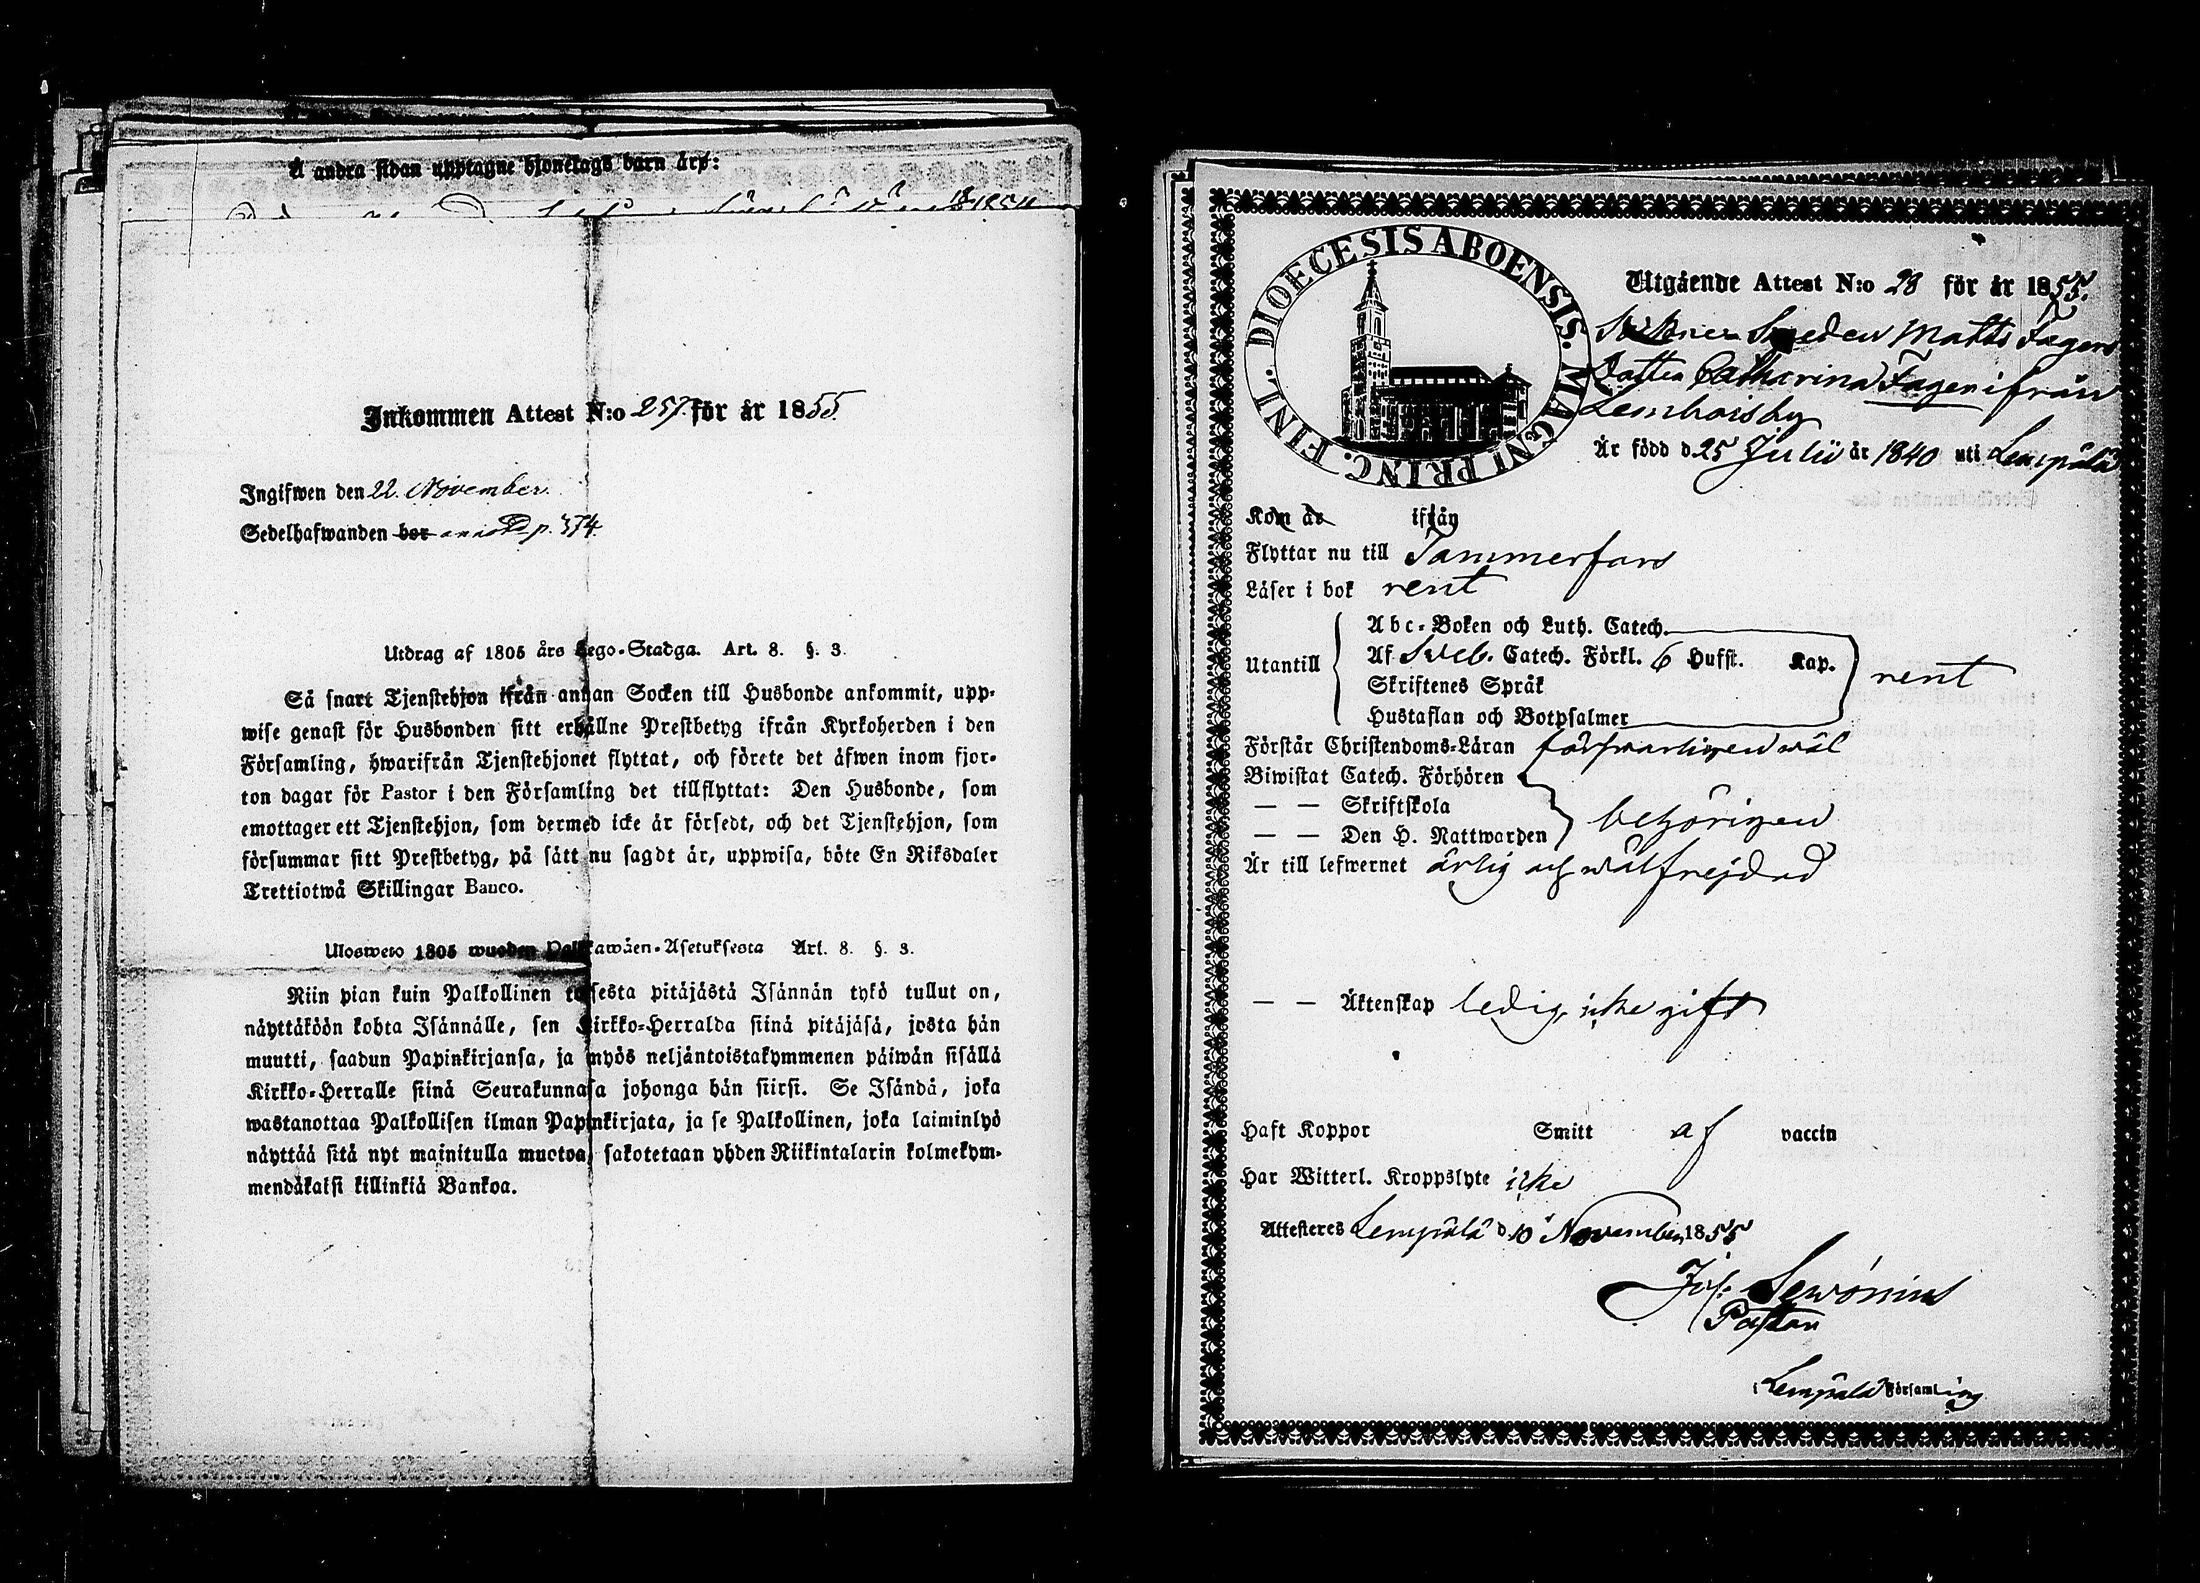 Å andra sidan upptagne hjonelags barn äro:
Inkommen Attest N:o 257. för år 1855.
Ingifwen den 22. November.
Sedelhafwanden bor annot. p. 374.
Utdrag af 1805 års Lego-Stadga. Art. 8. §. 3.
Så snart Tjenstehjon ifrån annan Socken till Husbonde ankommit, upp-
wise genast för Husbonden sitt erhållne Prestbetyg ifrån Kyrkoherden i den
Församling, hwarifrån Tjenstehjonet flyttat, och förete det äfwen inom fjor-
ton dagar för Pastor i den Församling det tillflyttat: Den Husbonde, som
emottager ett Tjenstehjon, som dermed icke är försedt, och det Tjenstehjon, som
försummar sitt Prestbetyg, på sätt nu sagdt är, uppwisa, böte En Riksdaler
Trettiotwå Skillingar Banco.
Ulosweto 1805 wuoden Palkkawäen-Asetuksesta Art. 8. §. 3.
Niin pian kuin Palkollinen toisesta pitäjästä Isännän tykö tullut on,
näyttäköön kohta Isännälle, sen Kirkko-Herralda siinä pitäjäsä, josta hän
muutti, saadun Papinkirjansa, ja myös neljäntoistakymmenen päiwän sisällä
Kirkko-Herralle siinä Seurakunnasa johonga hän siirsi. Se Isändä, joka
wastanottaa Palkollisen ilman Papinkirjata, ja se Palkollinen, joka laiminlyö
näyttää sitä nyt mainitulla muotoa, sakotetaan yhden Riikintalarin kolmekym-
mendäkaksi killinkiä Bankoa.
DIOECESIS ABOENSIS. MAGNI PRINC. FINL.
Utgående Attest N:o 28 för år 1855.
Sockne Smeden Matts Fagers
Dotter Catharina Fager ifrån
Lemboisby
Är född d. 25 Julii år 1840 uti Lempälä
Kom år ifrån
Flyttar nu till Tammerfors
Läser i bok rent
Utantill
Abc-Boken och Luth. Catech.
Af Sveb. Catech. Förkl. 6 Hufst. Kap.
Skriftenes Språk
Hustaflan och Botpsalmer
rent
Förstår Christendoms-Läran försvarligen väl
Biwistat Catech. Förhören
— — Skriftskola
— — Den H. Nattwarden
behörigen
Är till lefwernet ärlig och wälfrejdad
— — Äktenskap ledig, icke gift
Haft Koppor Smitt af vaccin
Har Witterl. Kroppslyte icke
Attesteres Lempälä d. 10 November 1855
Jos. Sewónius
Pastor
i Lempälä Församling